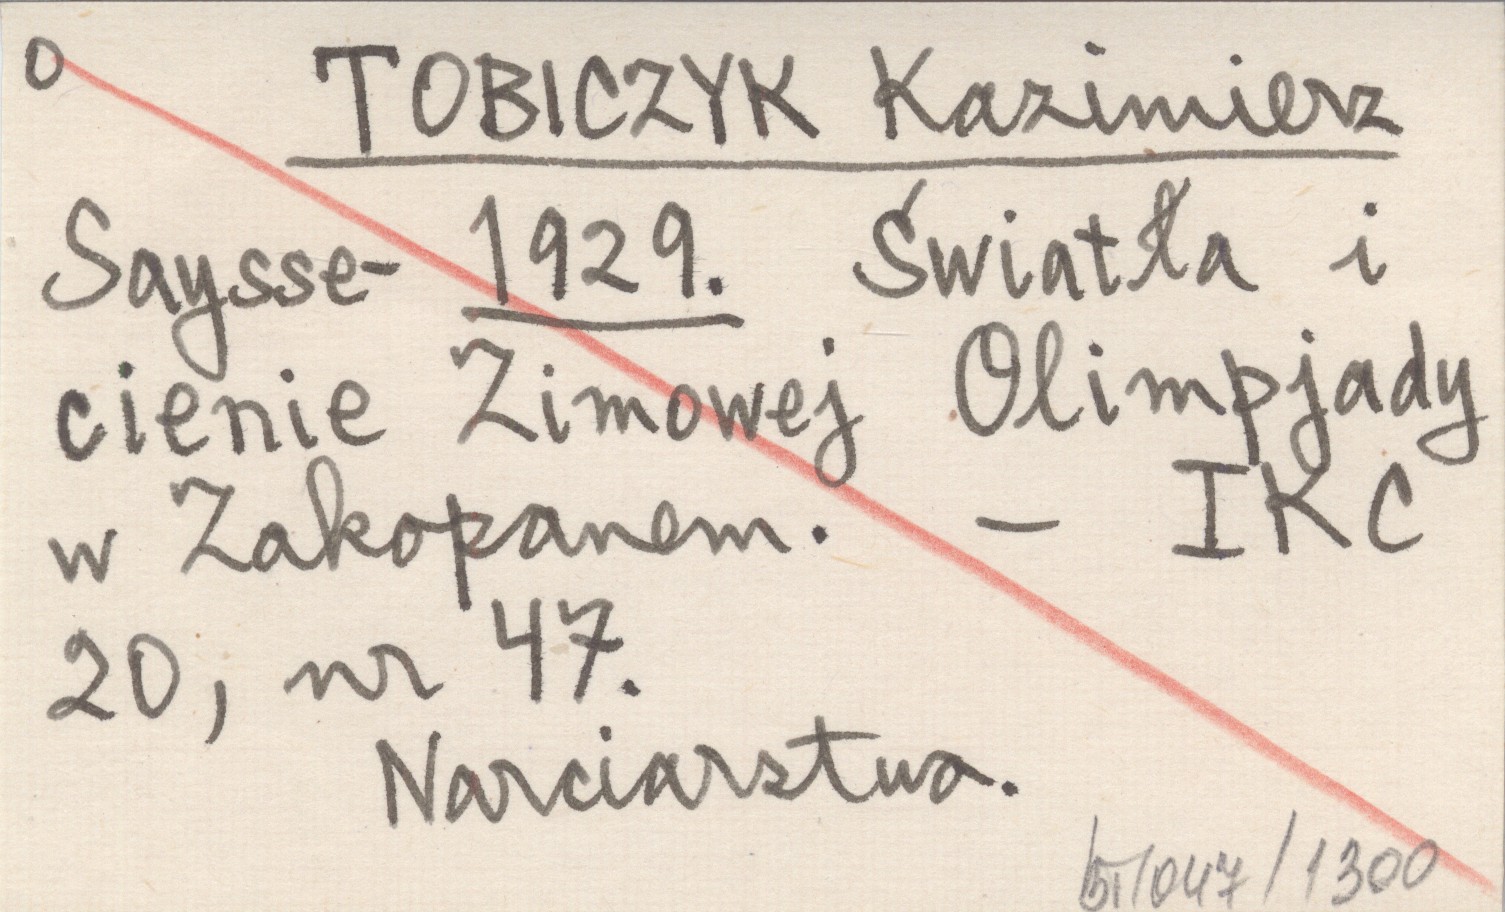 O TOBICZYK Kazimierz
Saysse- 1929. Światła i
cienie Zimowej Olimpjady
w Zakopanem. – IKC
20, nr 47.
Narciarstwo.
/047/1300